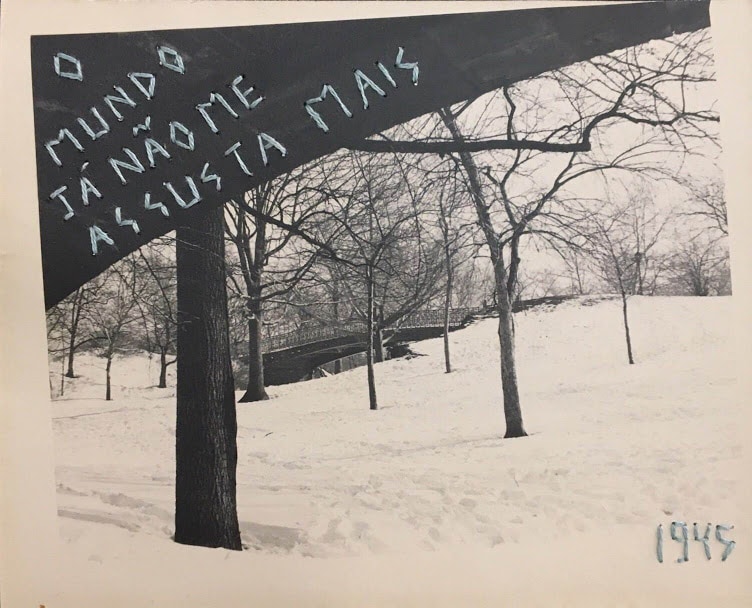 O MUNDO
JÁ NÃO ME
ASSUSTA MAIS
1945